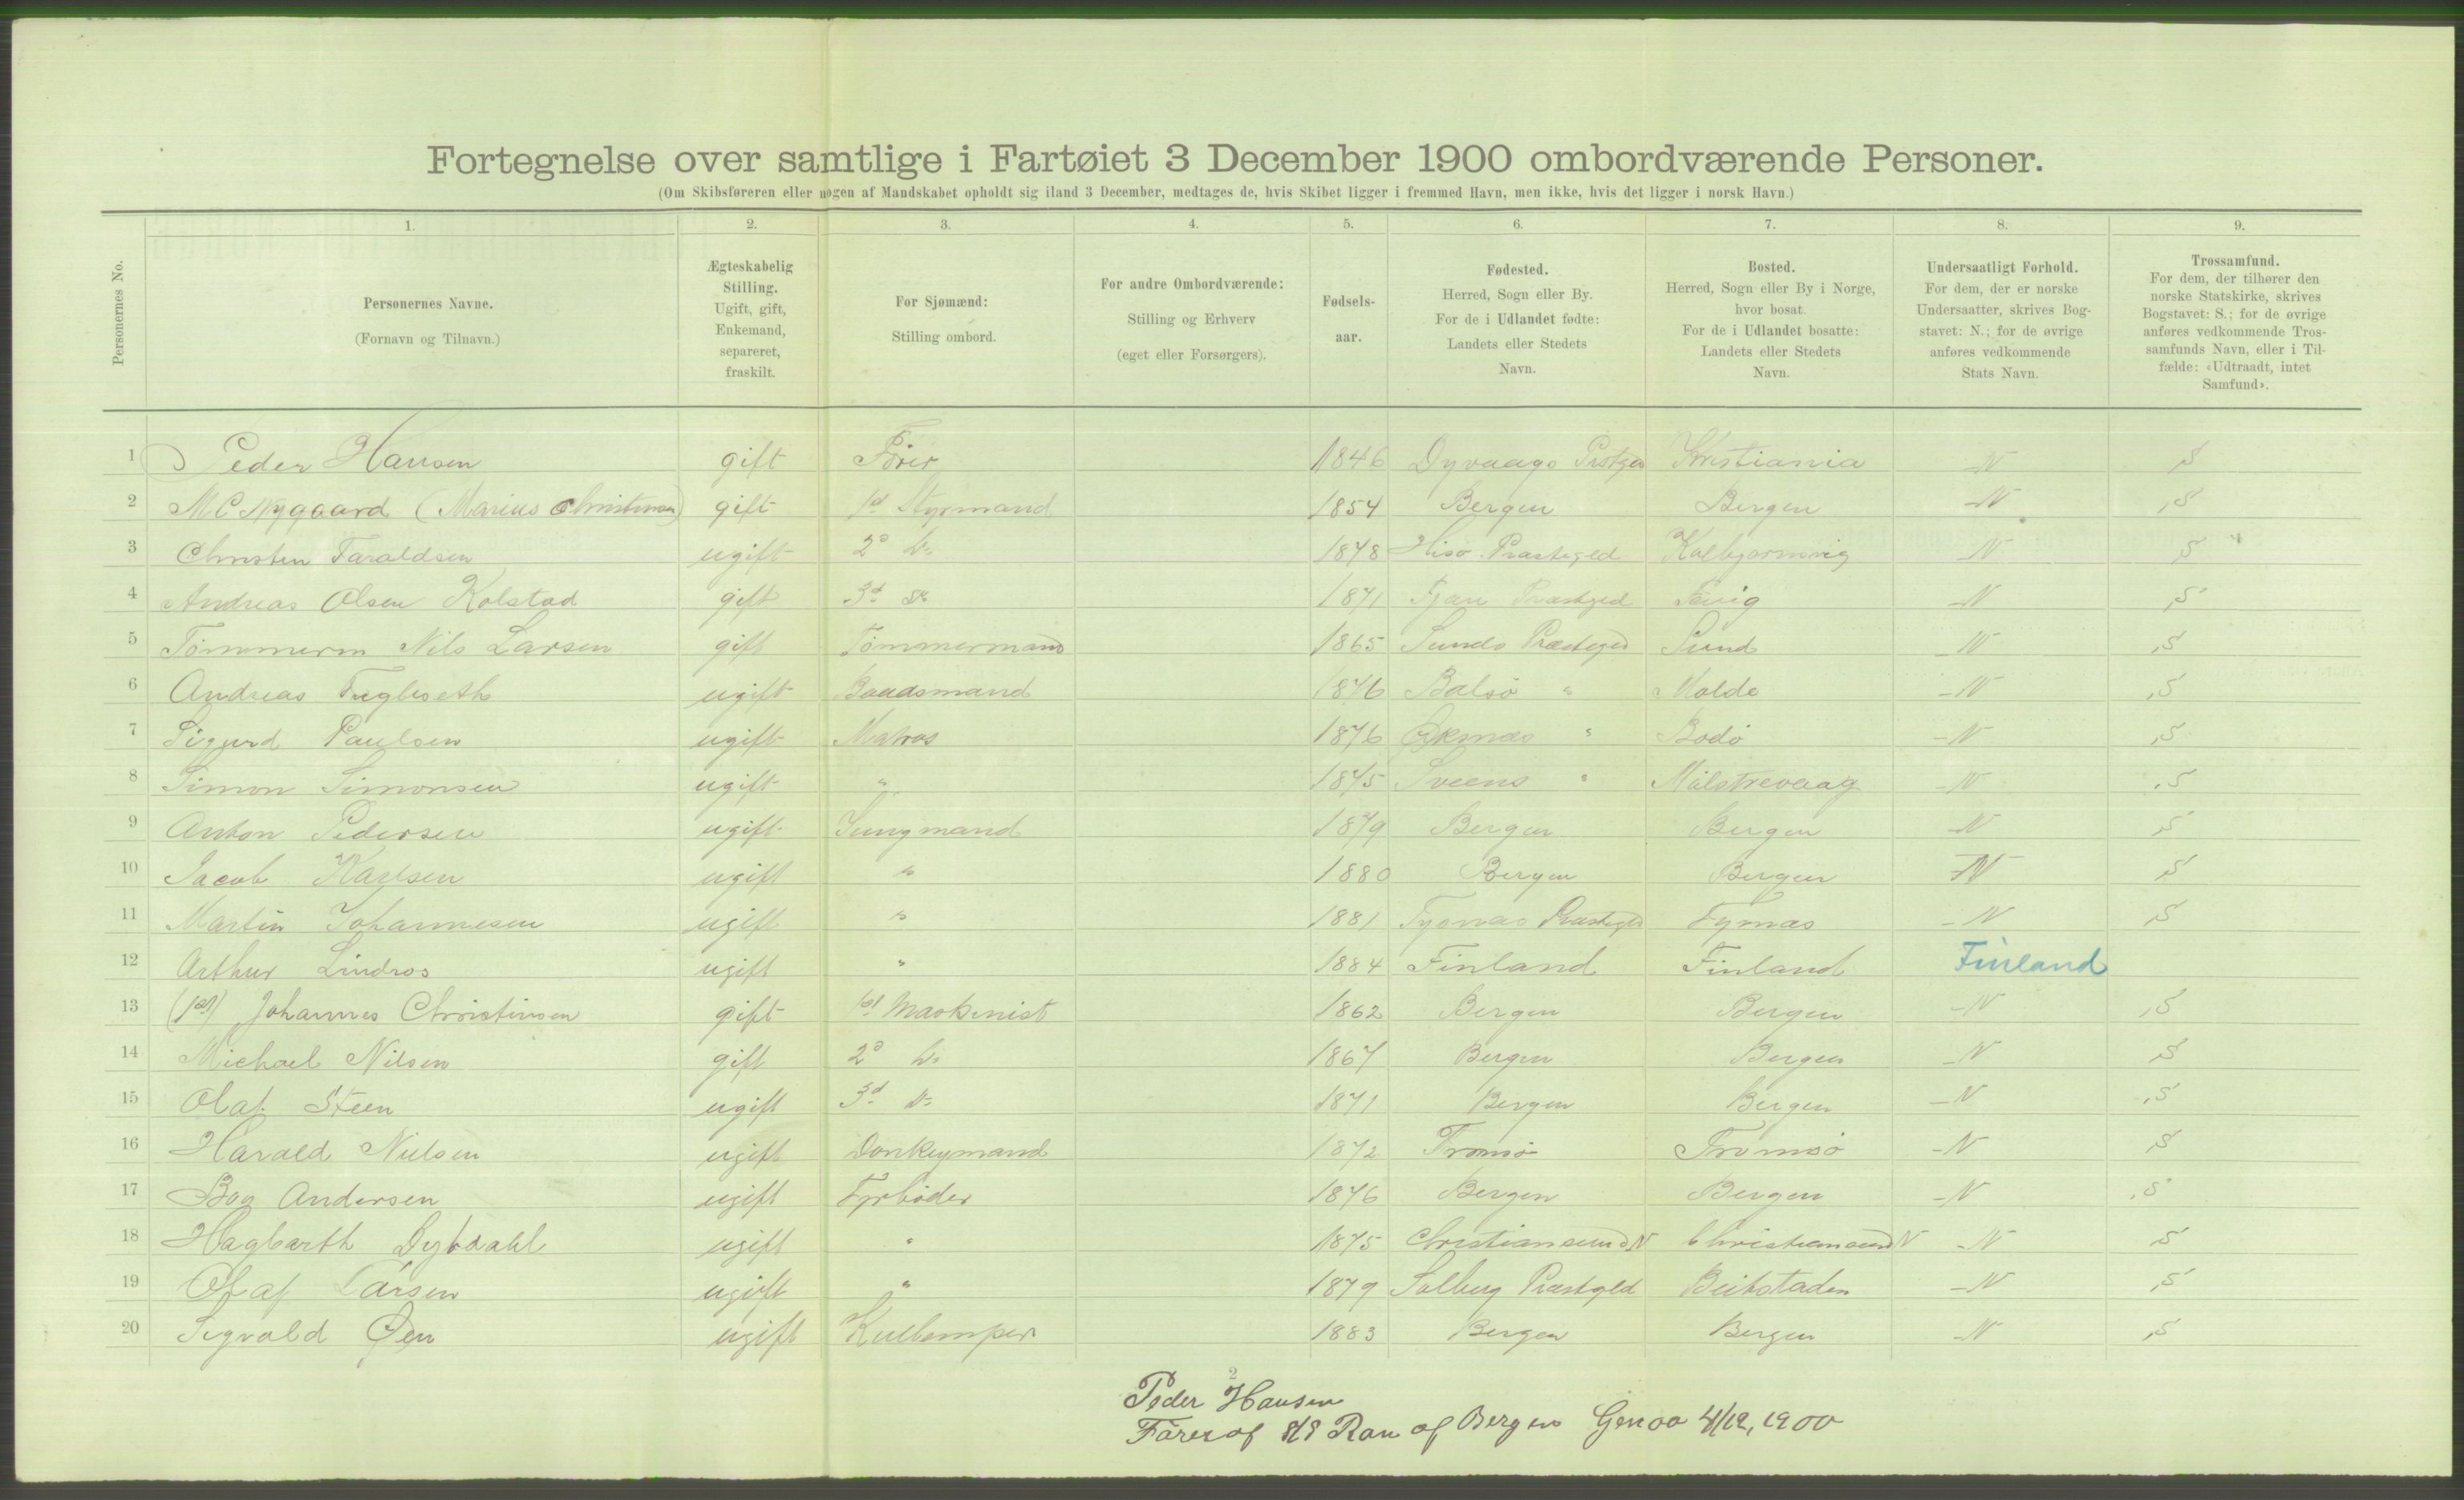 Fortegnelse over samtlige i Fartøiet 3 December 1900 ombordværende Personer.
(Om Skibsføreren eller nogen af Mandskabet opholdt sig iland 3 December, medtages de, hvis Skibet ligger i fremmed Havn, men ikke, hvis det ligger i norsk Havn.)
Personernes No.
1.
Personernes Navne.
(Fornavn og Tilnavn.)
2.
Ægteskabelig
Stilling.
Ugift, gift,
Enkemand,
separeret,
fraskilt.
3.
For Sjømænd:
Stilling ombord.
4.
For andre Ombordværende:
Stilling og Erhverv
(eget eller Forsørgers).
5.
Fødsels-
aar.
6.
Fødested.
Herred, Sogn eller By.
For de i Udlandet fødte:
Landets eller Stedets
Navn.
7.
Bosted.
Herred, Sogn eller By i Norge,
hvor bosat.
For de i Udlandet bosatte:
Landets eller Stedets
Navn.
8.
Undersaatligt Forhold.
For dem, der er norske
Undersaatter, skrives Bog-
stavet: N.; for de øvrige
anføres vedkommende
Stats Navn.
9.
Trossamfund.
For dem, der tilhører den
norske Statskirke, skrives
Bogstavet: S.; for de øvrige
anføres vedkommende Tros-
samfunds Navn, eller i Til-
fælde: «Udtraadt, intet
Samfund».
1 Peder Hansen gift Förer 1846 Dyvaags Kristiania N S
2 M C Nygaard (Marius Christensen) gift 1st Styrmand 1854 Bergen Bergen N S
3 Christen Taraldsen ugift 2d Do 1878 Hisö Prastegeld Kolbjornsvig N S
4 Andreas Olsen Kolstad gift 3d Do 1871 Prastgjed Fevig N S
5 Tömmerm Nils Larsen gift Tömmermand 1865 Sunds Præsteged Sund N S
6 Andreas Fugleseth ugift Baadsmand 1876 Bolsö " Molde N S
7 Sigurd Paulsen ugift Matros 1876 " Bodö N S
8 Simon Simonsen ugift " 1875 Sveens " Mølstrevaag N S
9 Anton Pedersen ugift Jungmand 1879 Bergen Bergen N S
10 Jacob Karlsen ugift " 1880 Bergen Bergen N S
11 Martin Johannesen ugift " 1881 Tysnas Prastegeld Tysnas N S
12 Arthur Lindros ugift " 1884 Finland Finland Finland
13 (1st) Johannes Christinsen gift 1st Maskinist 1862 Bergen Bergen N S
14 Michael Nilsen gift 2d Do 1867 Bergen Bergen N S
15 Olaf Steen ugift 3d Do 1871 Bergen Bergen N S
16 Harald Nielsen ugift Donkeymand 1872 Tromsö Tromsö N S
17 Boy Andersen ugift Fyrböder 1876 Bergen Bergen N S
18 Hagbarth Dybdahl ugift " 1875 Christiansund N Christiansund N N S
19 Olaf Larsen ugift " 1879 Solberg Prastgeld Beitstaden N S
20 Sigvald Øen ugift Kullemper 1883 Bergen Bergen N S
2
Peder Hansen
Förer af S/S Ran af Bergen Genoa 4/12, 1900